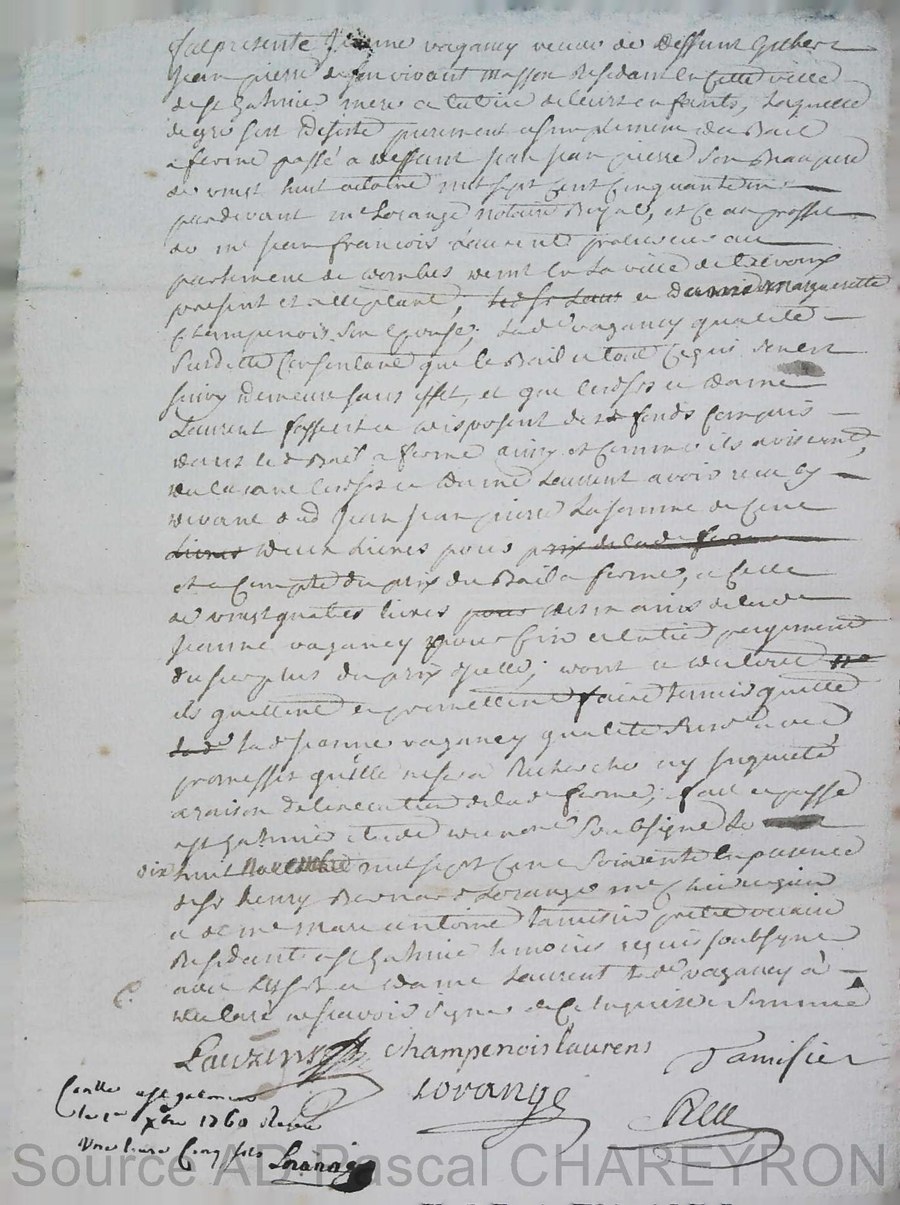 fut presente Jeanne vagancy veuve de deffunt Gilbert
Jean pierre de son vivant masson Residant en Cette ville
de st galmier mere de leurs enfants, Laquelle
de gré sest desisté purement et simplement du Bail
a ferme passé a deffunt Jean Jean pierre son Beaupere
le vingt huit octobre mil sept Cent Cinquante
pardevant me Lorange notaire Royal, et Ce au proffit
de mr Jean francois Laurent procureur au
parlement de dombes, en La ville de trevoux
present et acceptant, et dame margueritte
Champenois son Epouse; Lad vagancy qualité
Susditte Consentant que le Bail et tout Ce qui sen est
suivy demeure sans effet, et que lesd sr et dame
Laurent fassent et disposent des fonds Compris
dans led Bail a ferme ainsy et Comme ils aviseront,
declarant lesd sr et dame Laurent avoir receu cy
devant dud Jean Jean pierre La somme de Cent
livres deux Livres pour prix de lad ferme
et a Compte du prix du Bail a ferme, et Celle
de vingt quatre livres pour des mains de lad
Jeanne vagancy pour fin et entier payement
du surplus du prix dyelle; dont
ils quittent et promettent faire tenir quitte
lad Jeanne vagancy qualité avec
promesse qu'elle ne sera Recherchée ny Inquieté
a raison de lexecution de lad ferme; fait et passé
a st galmier etude du nore soubsigné Le
dix huit novembre mil sept Cent Soixante En presence
de sr henry Bernard Lorange me Chirurgien
et de me marc antoine tamisier
Residants a st galmier temoins requis soubsignés
avec Lesd sr et dame Laurent Lad vagancy a
declaré ne scavoir signer de Ce Enquise et sommée
Laurens champenois laurens
Tamisier
Lorange
Controllé a st galmier
le xbre 1760 Receu
Une livre Cinq sols Lorange
Source AD Pascal CHAREYRON